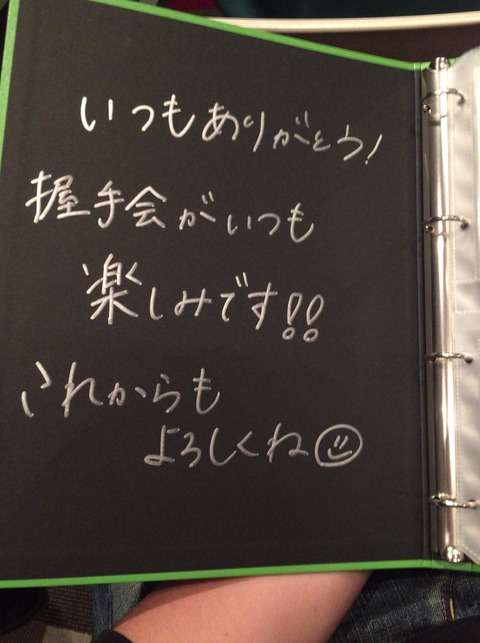 いつもありがとう!
握手会がいつも
楽しみです!!
これからも
よろしくね